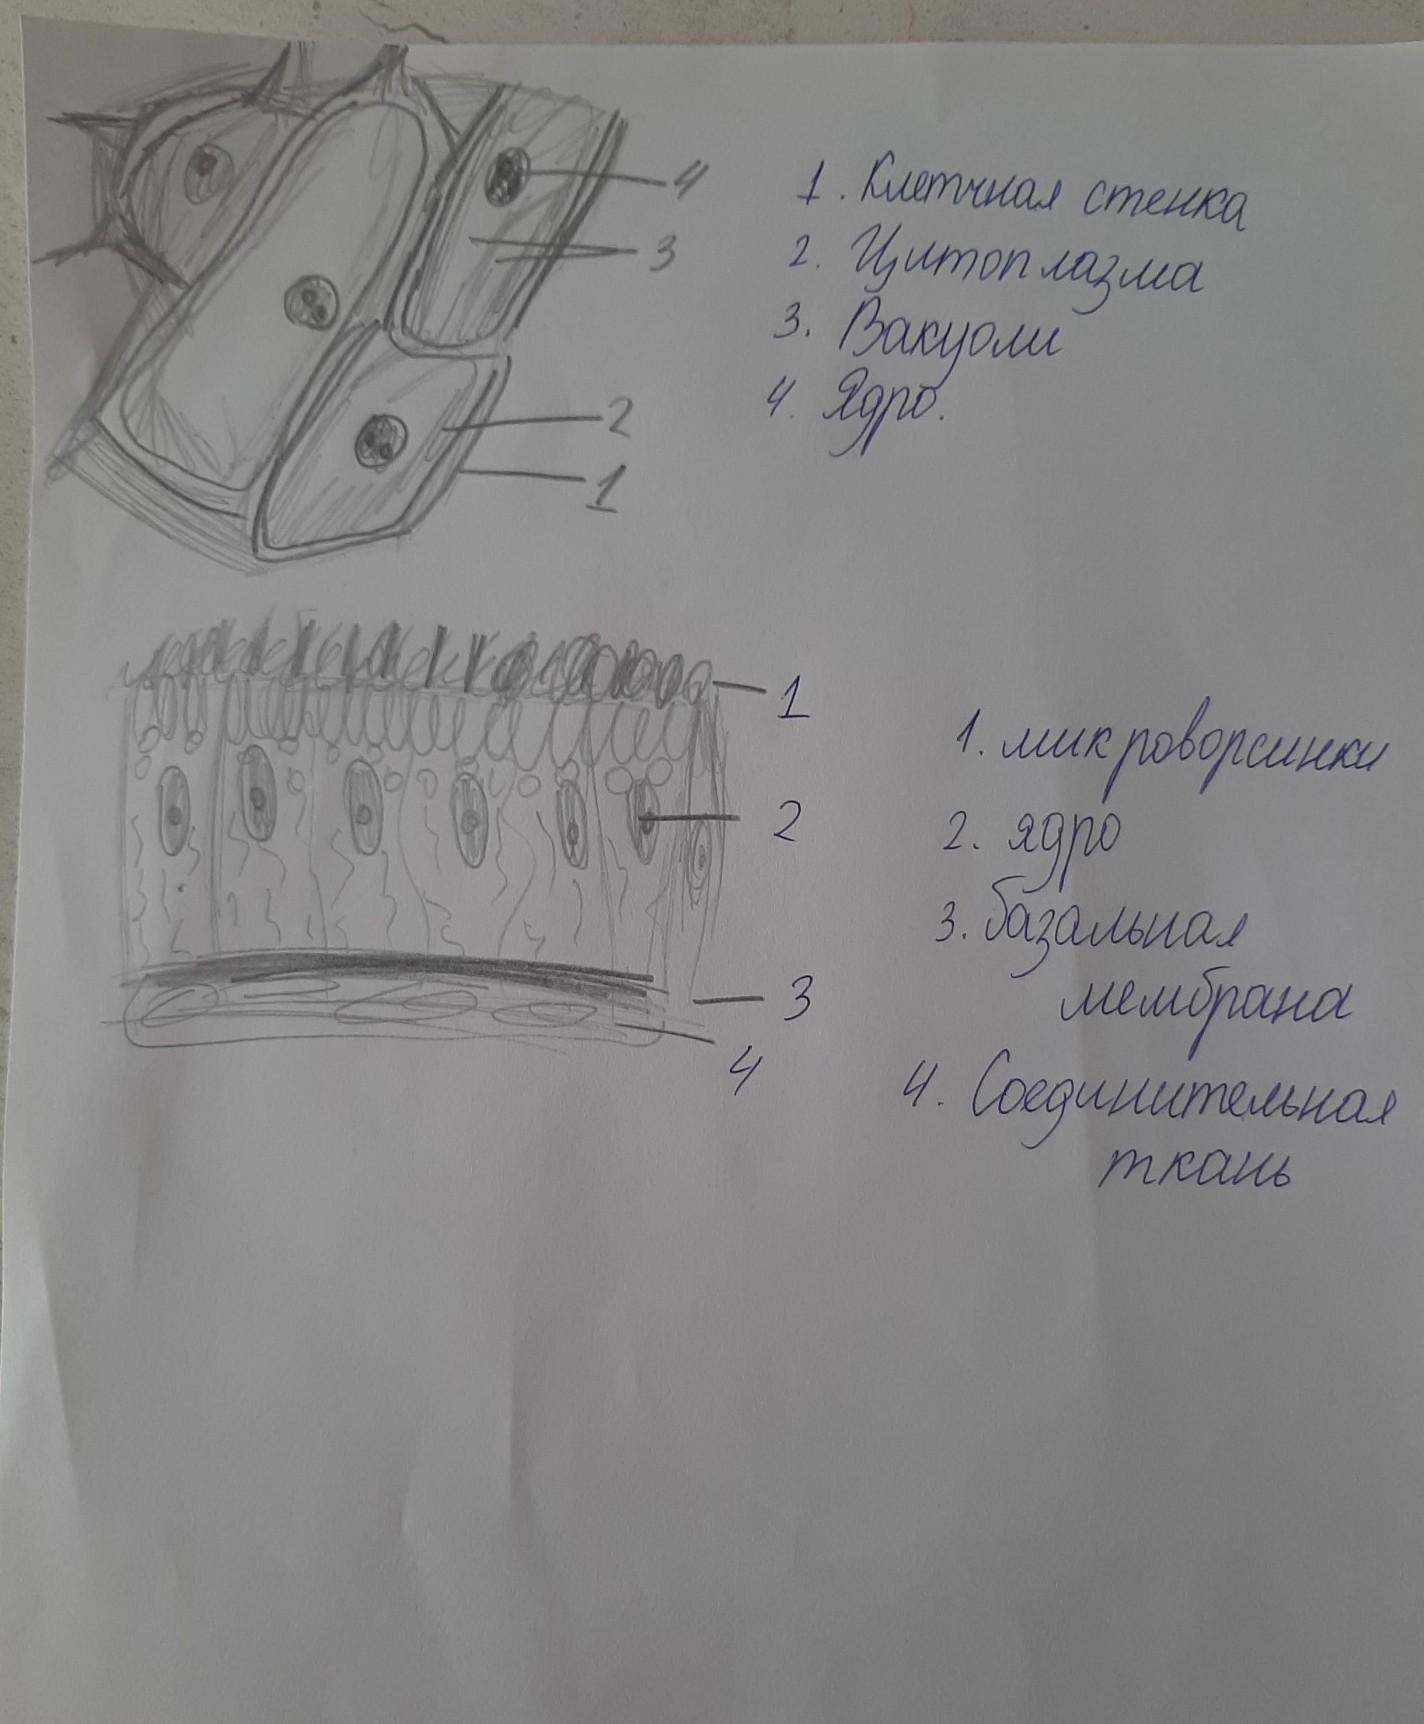 4
3
2
1
1. Клетчная стенка
2. Цитоплазма
3. Вакуоли
4. Ядро.
1
2
3
4
1. микроворсинки
2. ядро
3. базальная
мембрана
4. Соединительная
ткань